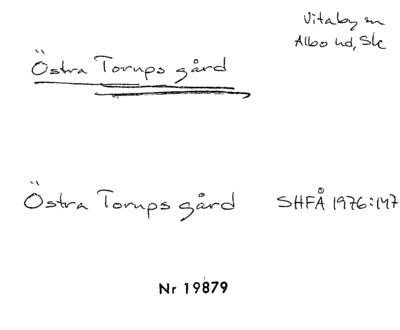 Vitaby sn
Albo hd, Sk
Östra Torups gård
Östra Torups gård SHFÅ 1976:147
Nr 19879